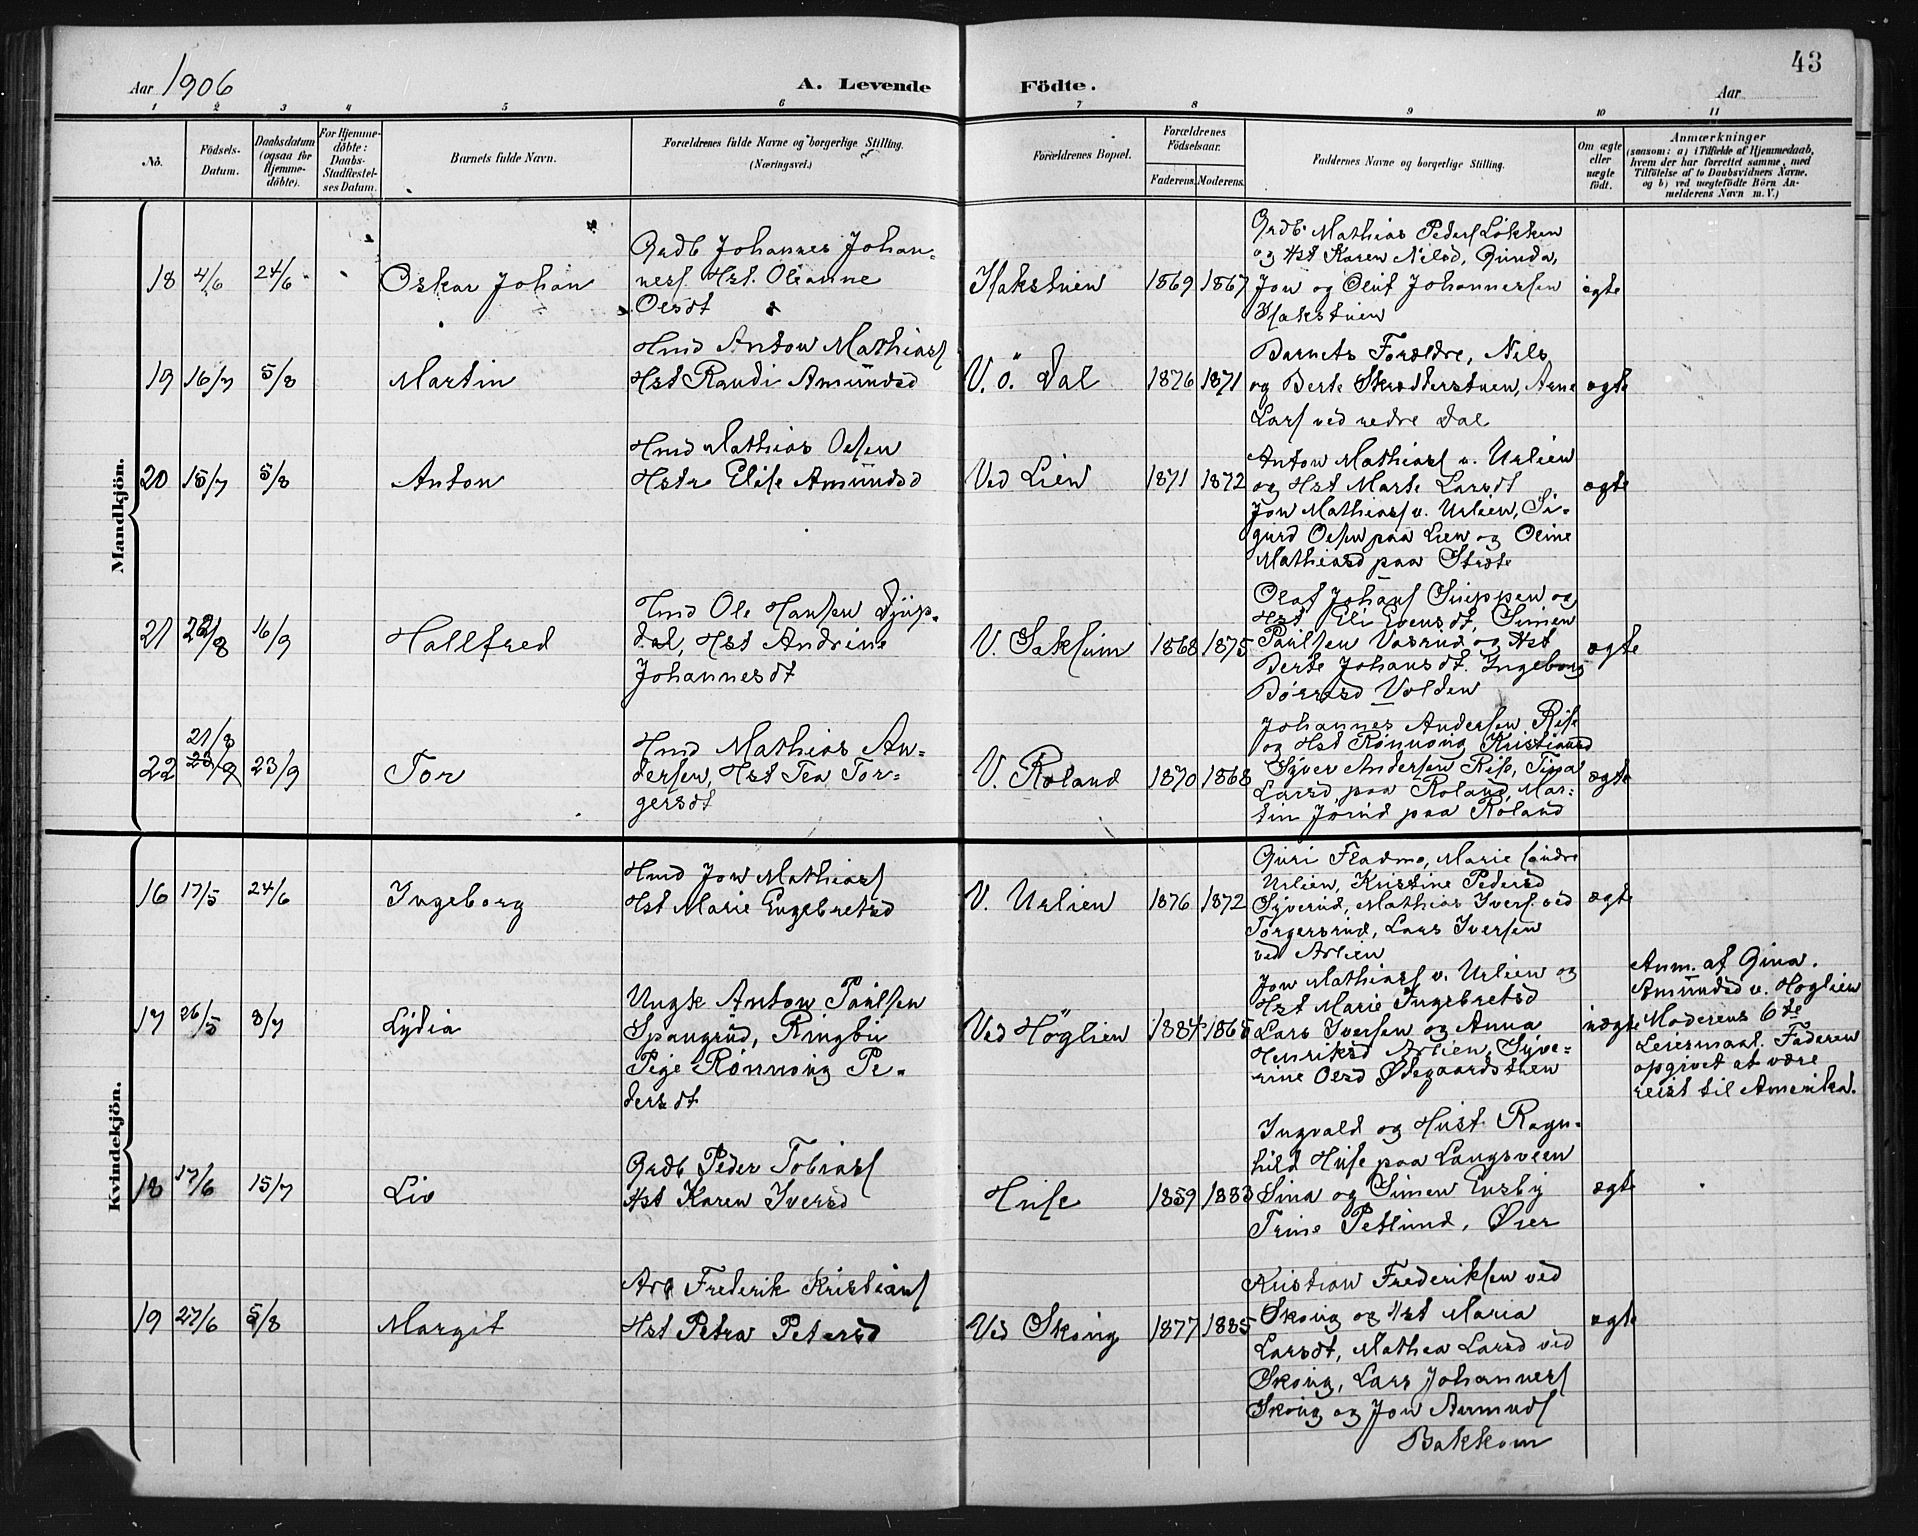 43
Aar 1906
A. Levende Födte.
Aar
1 2 3 4 5 6 7 8 9 10 11
No.
Födsels-Datum.
Daabsdatum (ogsaa for Hjemme-döbte).
For Hjemme-döbte: Daabs-Stadfæstel-ses Datum.
Barnets fulde Navn.
Forældrenes fulde Navne og borgerlige Stilling.
(Næringsvei.)
Forældrenes Bopæl.
Forældrenes Födselsaar.
Faderens. Moderens.
Faddernes Navne og borgerlige Stilling.
Om ægte eller uægte födt.
Anmærkninger
(saasom: a) i Tilfælde af Hjemmedaab,
hvem der har forrettet samme, med
Tilföielse af to Daabsvidners Navne.
og b) ved uægtefödte Börn An-
melderens Navn m. V.)
Mandkjön.
18 4/6 24/6 Oskar Johan
Grdb Johannes Johan-
nesſ. Hst. Oleanne
Olsdt
Hakstuen 1869 1867
Grdb. Mathias Pedersſ Lökken
og Hst Karen Nilsd, Gunda,
Jon og Oluf Johannessen
Hakstuen
ægte
19 16/7 5/8 Martin
Hmd Anton Mathiasſ
Hst Randi Amundsd
V. ö. Dal 1876 1871
Barnets Forældre, Nils
og Berte Skrædderstuen, Arne
Larsſ ved nedre Dal
ægte
20 15/7 5/8 Anton
Hmd Mathias Olsen
Hstr Elise Amundsd
Ved Lien 1871 1872
Anton Mathiasſ v. Urlien
og Hst Marte Larsdt
Jon Mathiasſ v. Urlien, Si-
gurd Olsen paa Lien og Oline
Mathiasd paa Stræte
ægte
21 22/8 16/9 Hallfred
Hmd Ole Hansen Djup-
dal, Hst Andrine
Johannesdt
V. Saksum 1868 1875
Olaf Johansſ Snippen og
Hst Eli Evensdt, Simen
Paulsen Vasrud og Hst
Berte Johansdt. Ingeborg
Börresd Volden
ægte
22 21/8 23/9 Tor
Hmd Mathias An-
dersen, Hst Tea Tor-
gersdt
V. Roland 1870 1868
Johannes Andersen Rise
og Hst Rönnoug Kristiansd
Syver Andersen Rise, Tina
Larsd paa Roland, Mar-
tin Jörud paa Roland
ægte
Kvindekjön.
16 17/5 24/6 Ingeborg
Hmd Jon Mathiasſ
Hst Marie Engebretsd
V. Urlien 1876 1872
Guri Fladmo, Marie söndre
Urlien, Kristine Pedersd
Syverud, Mathias Iversſ. ved
Torgersrud, Lars Iversen
ved Arlien
ægte
17 26/5 8/7 Lydia
Ungk Anton Paulsen
Spangrud, Ringbu
Pige Rönnoug Pe-
dersdt
Ved Höglien 1884 1865
Jon Mathiasſ v. Urlien og
Hst Marie Ingebretsd
Lars Iversen og Anna
Henriksd Arlien, Syve-
rine Olsd Ödegaardsthen
uægte
Anm. af Gina
Amundsd v. Höglien
Moderens 6te
Leiermaal. Faderen
opgivet at være
reist til Amerika.
18 17/6 15/7 Liv
Grdb Peder Tobiasſ
Hst Karen Iversd
Huse 1859 1883
Ingvald og Hust. Ragn-
hild Huse paa Langsveen
Sina og Simen Ensby
Trine Petlund, Öier
ægte
19 27/6 5/8 Margit
Arb Frederik Kristiansſ
Hst Petra Petersd
Ved Skoug 1877 1885
Kristian Frederiksen ved
Skoug og Hst Maria
Larsdt, Mathea Larsd ved
Skoug, Lars Johannesſ
Skoug og Jon Amundsſ
Bakkom
ægte